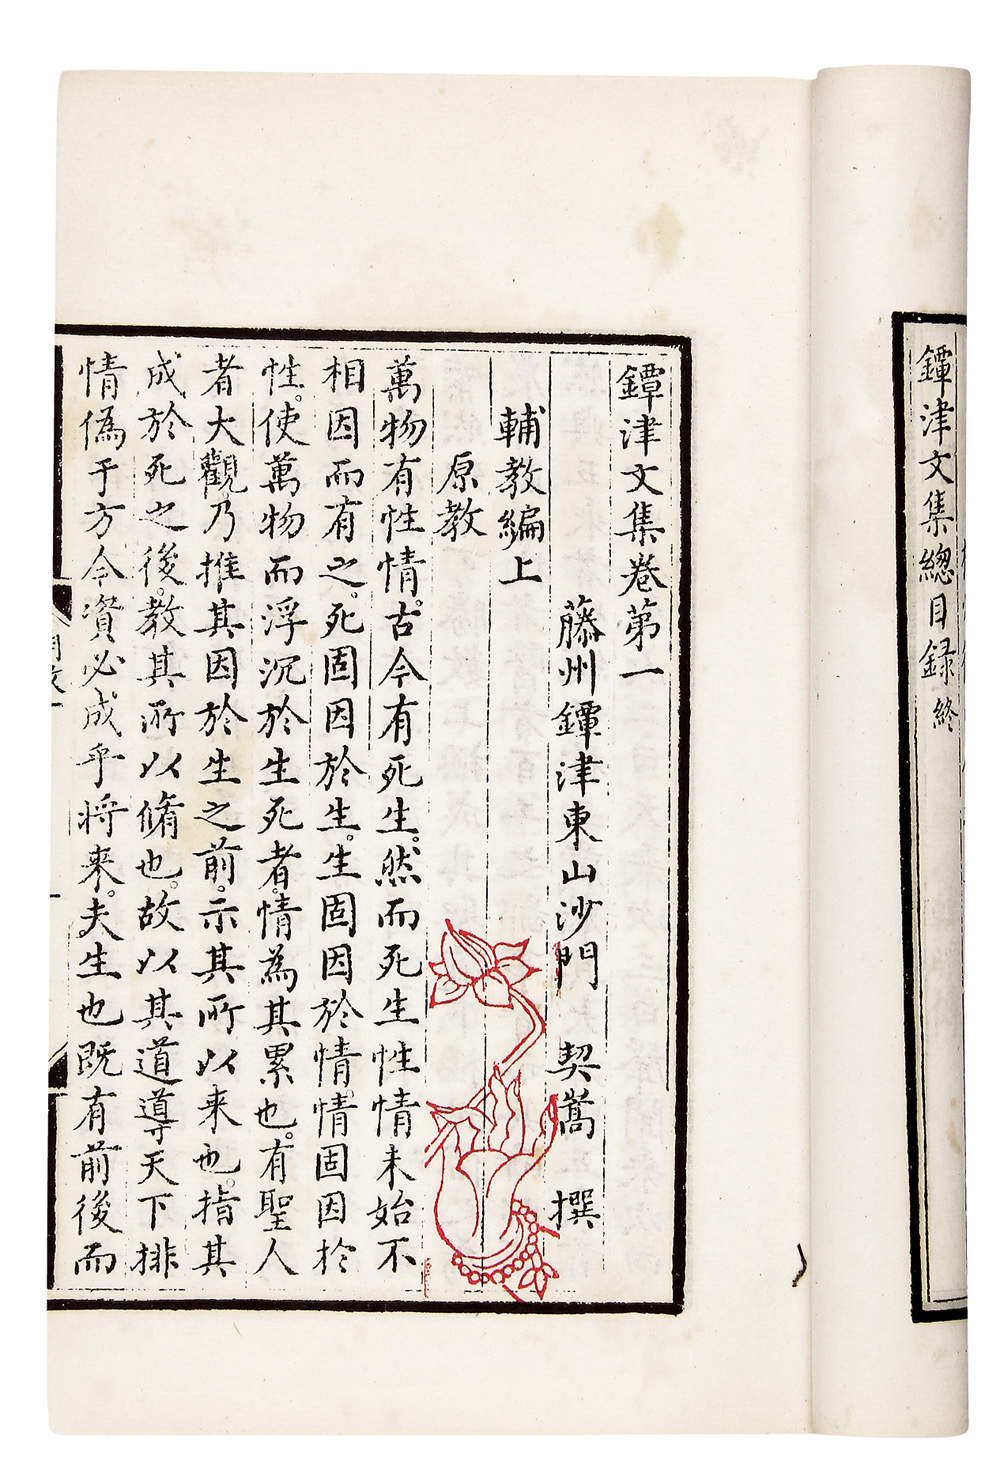 鐔津文集總目録終
鐔津文集卷第一
藤州鐔津東山沙門 契嵩 撰
輔教編上
原教
萬物有性情。古今有死生。然而死生性情未始不
相因而有之。死固因於生。生固因於情。情固因於
性。使萬物而浮沉於生死者。情為其累也。有聖人
者大觀。乃推其因於生之前。示其所以来也。指其
成於死之後。教其所以脩也。故以其道導天下排
情偽于方今。資必成乎将来。夫生也既有前後而